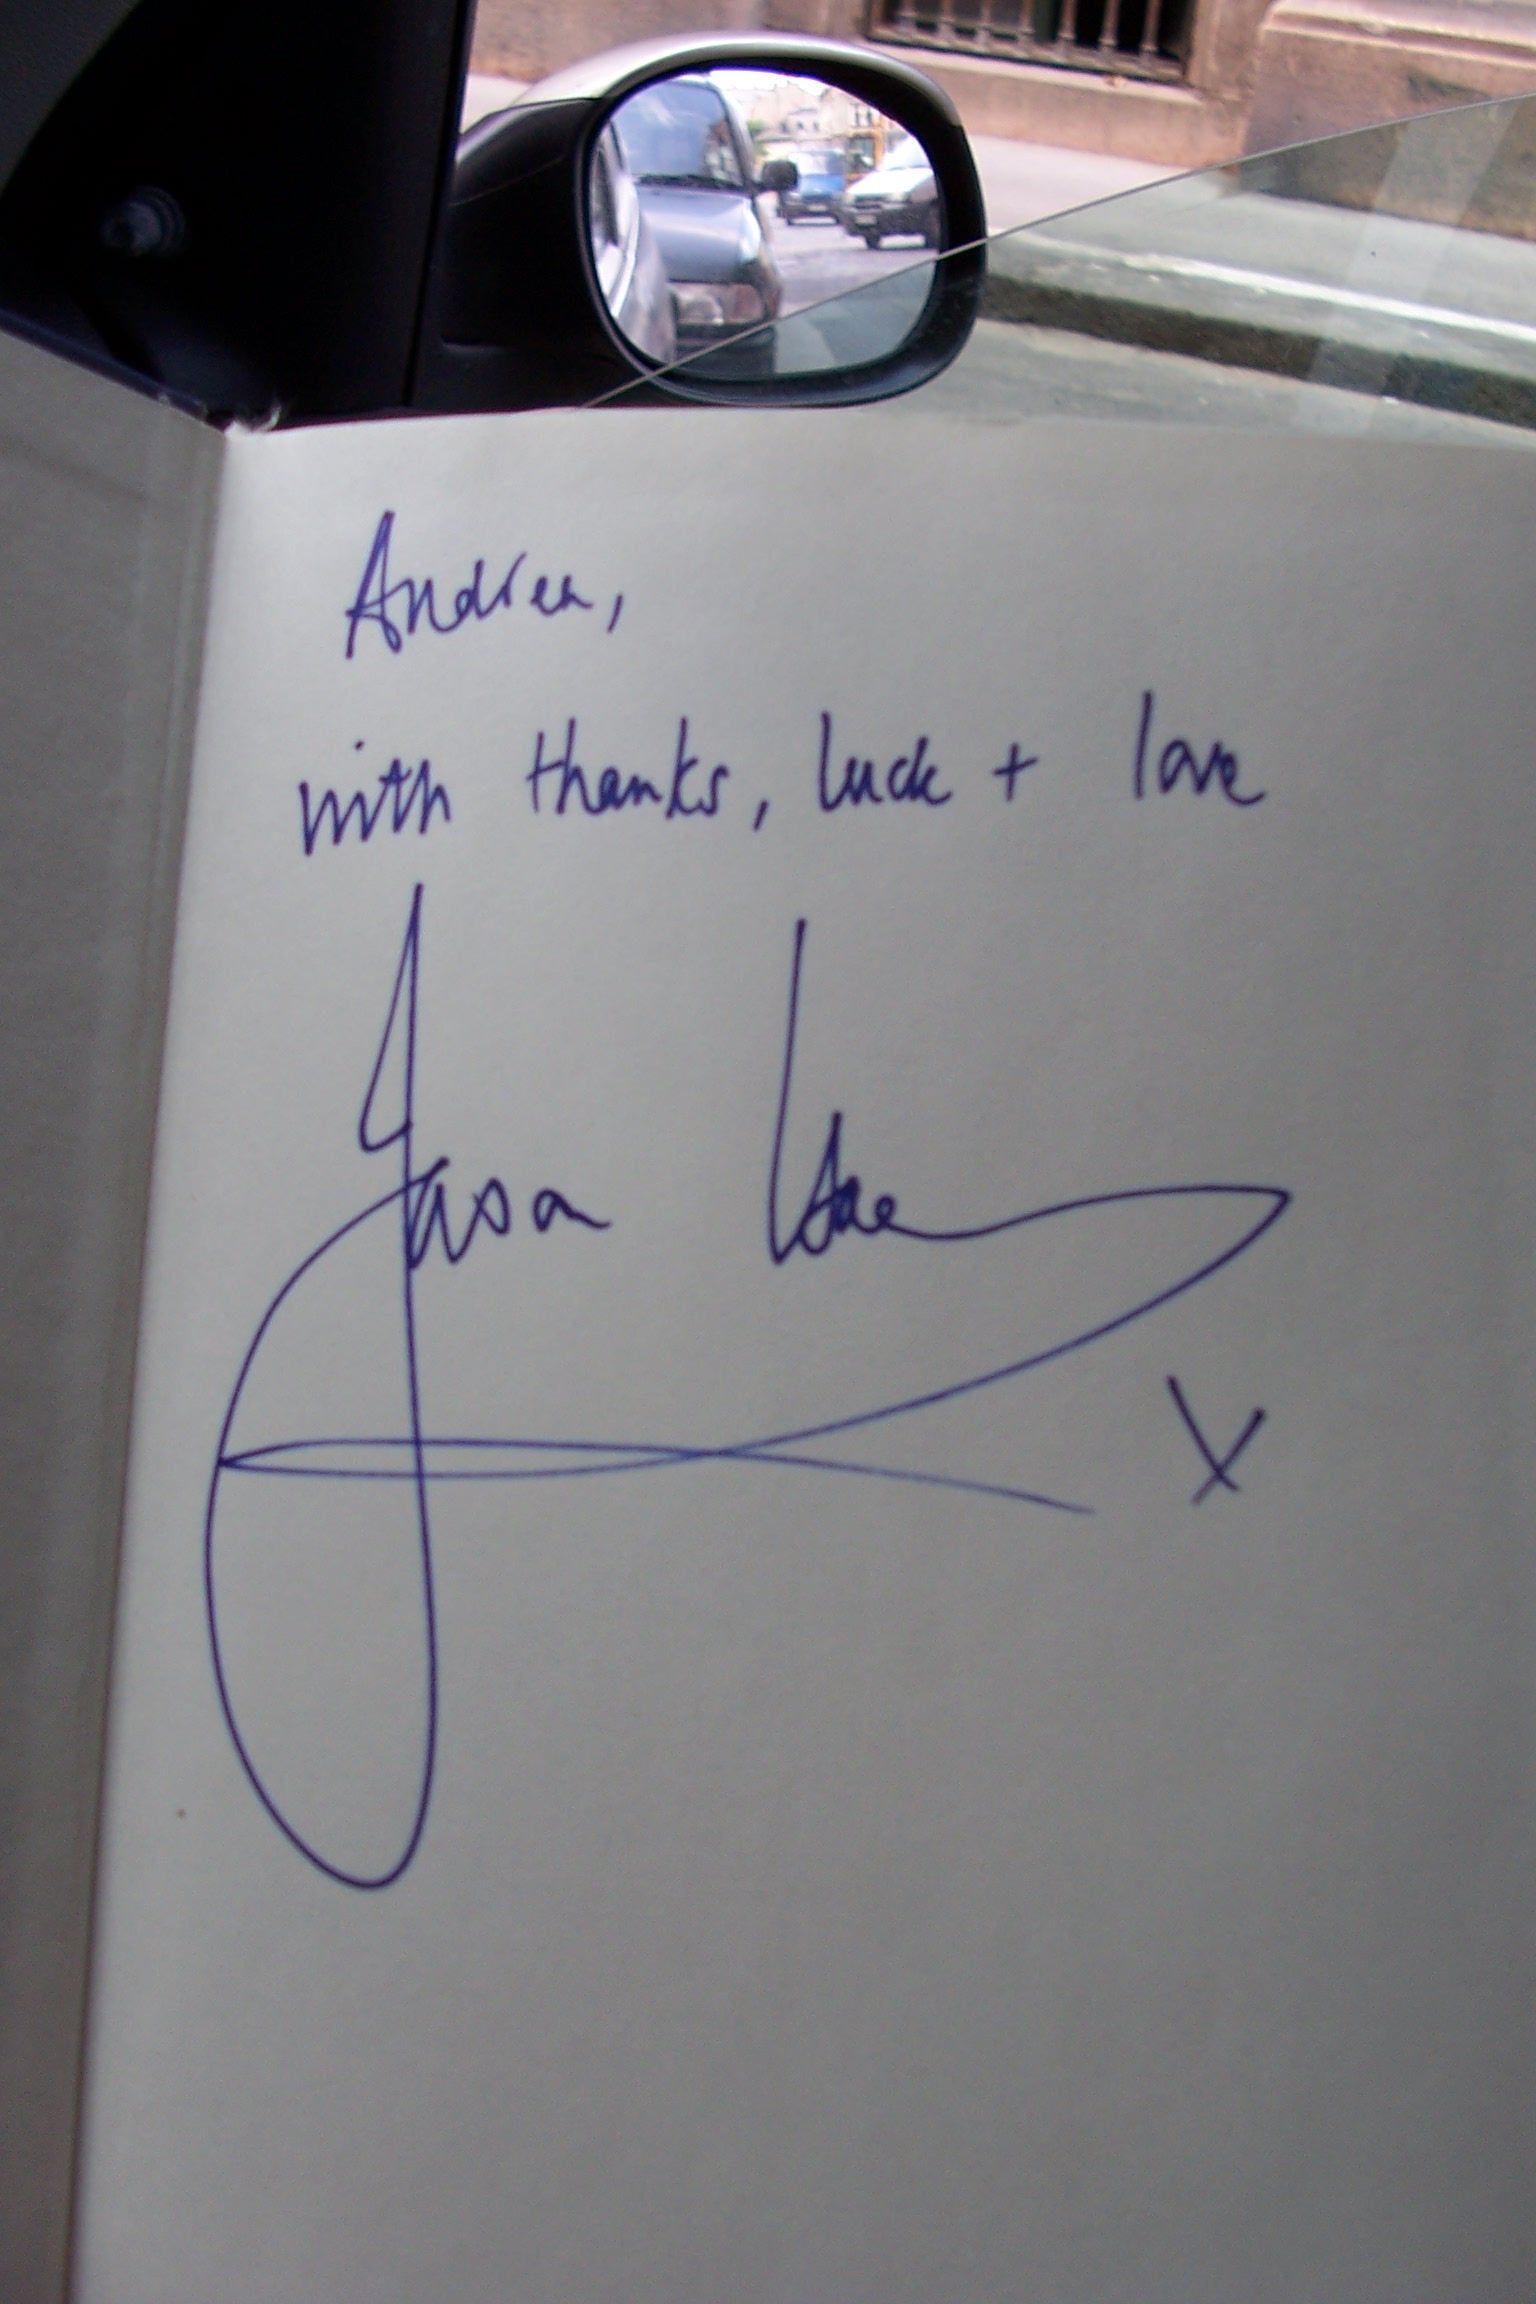 Andrea,
with thanks, luck + love
Jason
x